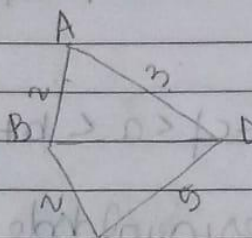 A
2
3
B
2
5